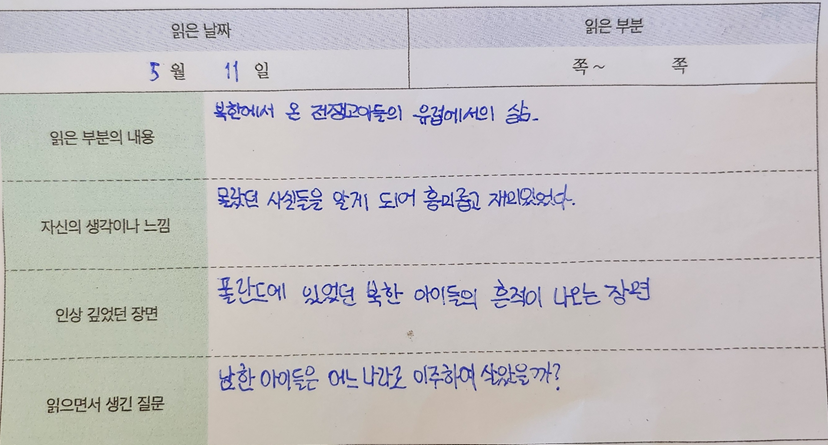 읽은 날짜 읽은 부분
5월 11일 쪽~ 쪽
읽은 부분의 내용 북한에서 온 전쟁고아들의 유럽에서의 삶.
자신의 생각이나 느낌 몰랐던 사실들을 알게 되어 흥미롭고 재미있었다.
인상 깊었던 장면 폴란드에 있었던 북한 아이들의 흔적이 나오는 장면
읽으면서 생긴 질문 남한 아이들은 어느 나라로 이주하여 살았을까?